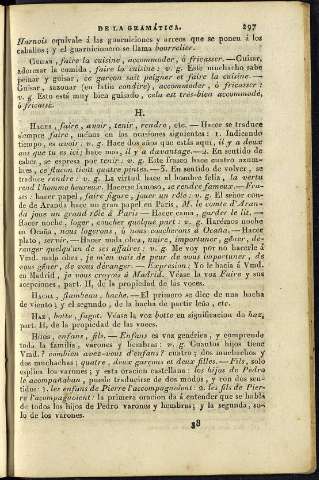 DE LA GRAMÁTICA. 297
Harnois equivale á las guarniciones y arreos que se ponen á los
caballos; y el guarnicionero se llama bourrelier.
GUISAR, faire la cuisine, accommoder, ó fricasser.—Guisar,
adornar la comida, faire la cuisine: v. g. Este muchacho sabe
peinar y guisar, ce garcon sait peigner et faire la cuisine.—
Guisar, sazonar (en latin condire), accommoder, ó fricasser:
v. g. Esto está muy bien guisado, cela est très-bien accommodé,
ó fricassé.
H.
HACER, faire, avoir, tenir, rendre, etc. — Hacer se traduce
siempre faire, ménos en las ocasiones siguientes: 1. Indicando
tiempo, es avoir: v. g. Hace dos años que estás aquí, il y a deux
ans que tu es ici; hace mas, il y a davantage.—4. En sentido de
caber, se espresa por tenir: v. g. Este frasco hace cuatro azum-
bres, ce flacon tient quatre pintes.—5. En sentido de volver, se
traduce rendre: v. g. La virtud hace al hombre feliz, la vertu
rend l'homme heureux. Hacerse famoso, se rendre fameux.—Fra-
ses: hacer papel, faire figure, jouer un rôle: v. g. El señor con-
de de Aranda hace un gran papel en Paris, M. le comte d'Aran-
da joue un grand rôle à Paris — Hacer cama, garder le lit.—
Hacer noche, loger, coucher quelque part: v. g. Harémos noche
en Ocaña, nous logerons, ó nous coucherons à Ocaña.—Hacer
plato, servir.—Hacer mala obra, nuire, importuner, gêner, dé-
ranger quelqu'un de ses affaires: v. g. Me voy por no hacerle á
Vmd. mala obra, je m'en vais de peur de vous importuner, de
vous gêner, de vous déranger.—Expresion: Yo le hacia á Vmd.
en Madrid, je vous croyois à Madrid. Véase la voz Faire y sus
acepciones, part. II, de la propiedad de las voces.
HACHA, flambeau, hache.—El primero se dice de una hacha
de viento; y el segundo, de la hacha de partir leña, etc.
HAZ, botte, fagot. Véase la voz botte en significacion de haz,
part. II, de la propiedad de las voces.
HIJOS, enfans, fils.—Enfans es voz genérica, y comprende
toda la familia, varones y hembras: v. g. Cuantos hijos tiene
Vmd.? combien avez-vous d'enfans? cuatro; dos muchachos y
dos muchachas; quatre, deux garçons et deux filles.—Fils, solo
esplica los varones; y esta oracion castellana: los hijos de Pedro
le acompañaban, puede traducirse de dos modos, y con dos sen-
tidos: 3. les enfans de Pierre l'accompagnoient: 2. les fils de Pier-
re l'accompagnoient: la primera oracion da á entender que se habla
de todos los hijos de Pedro varones y hembras; y la segunda, so-
lo de los varones.
38